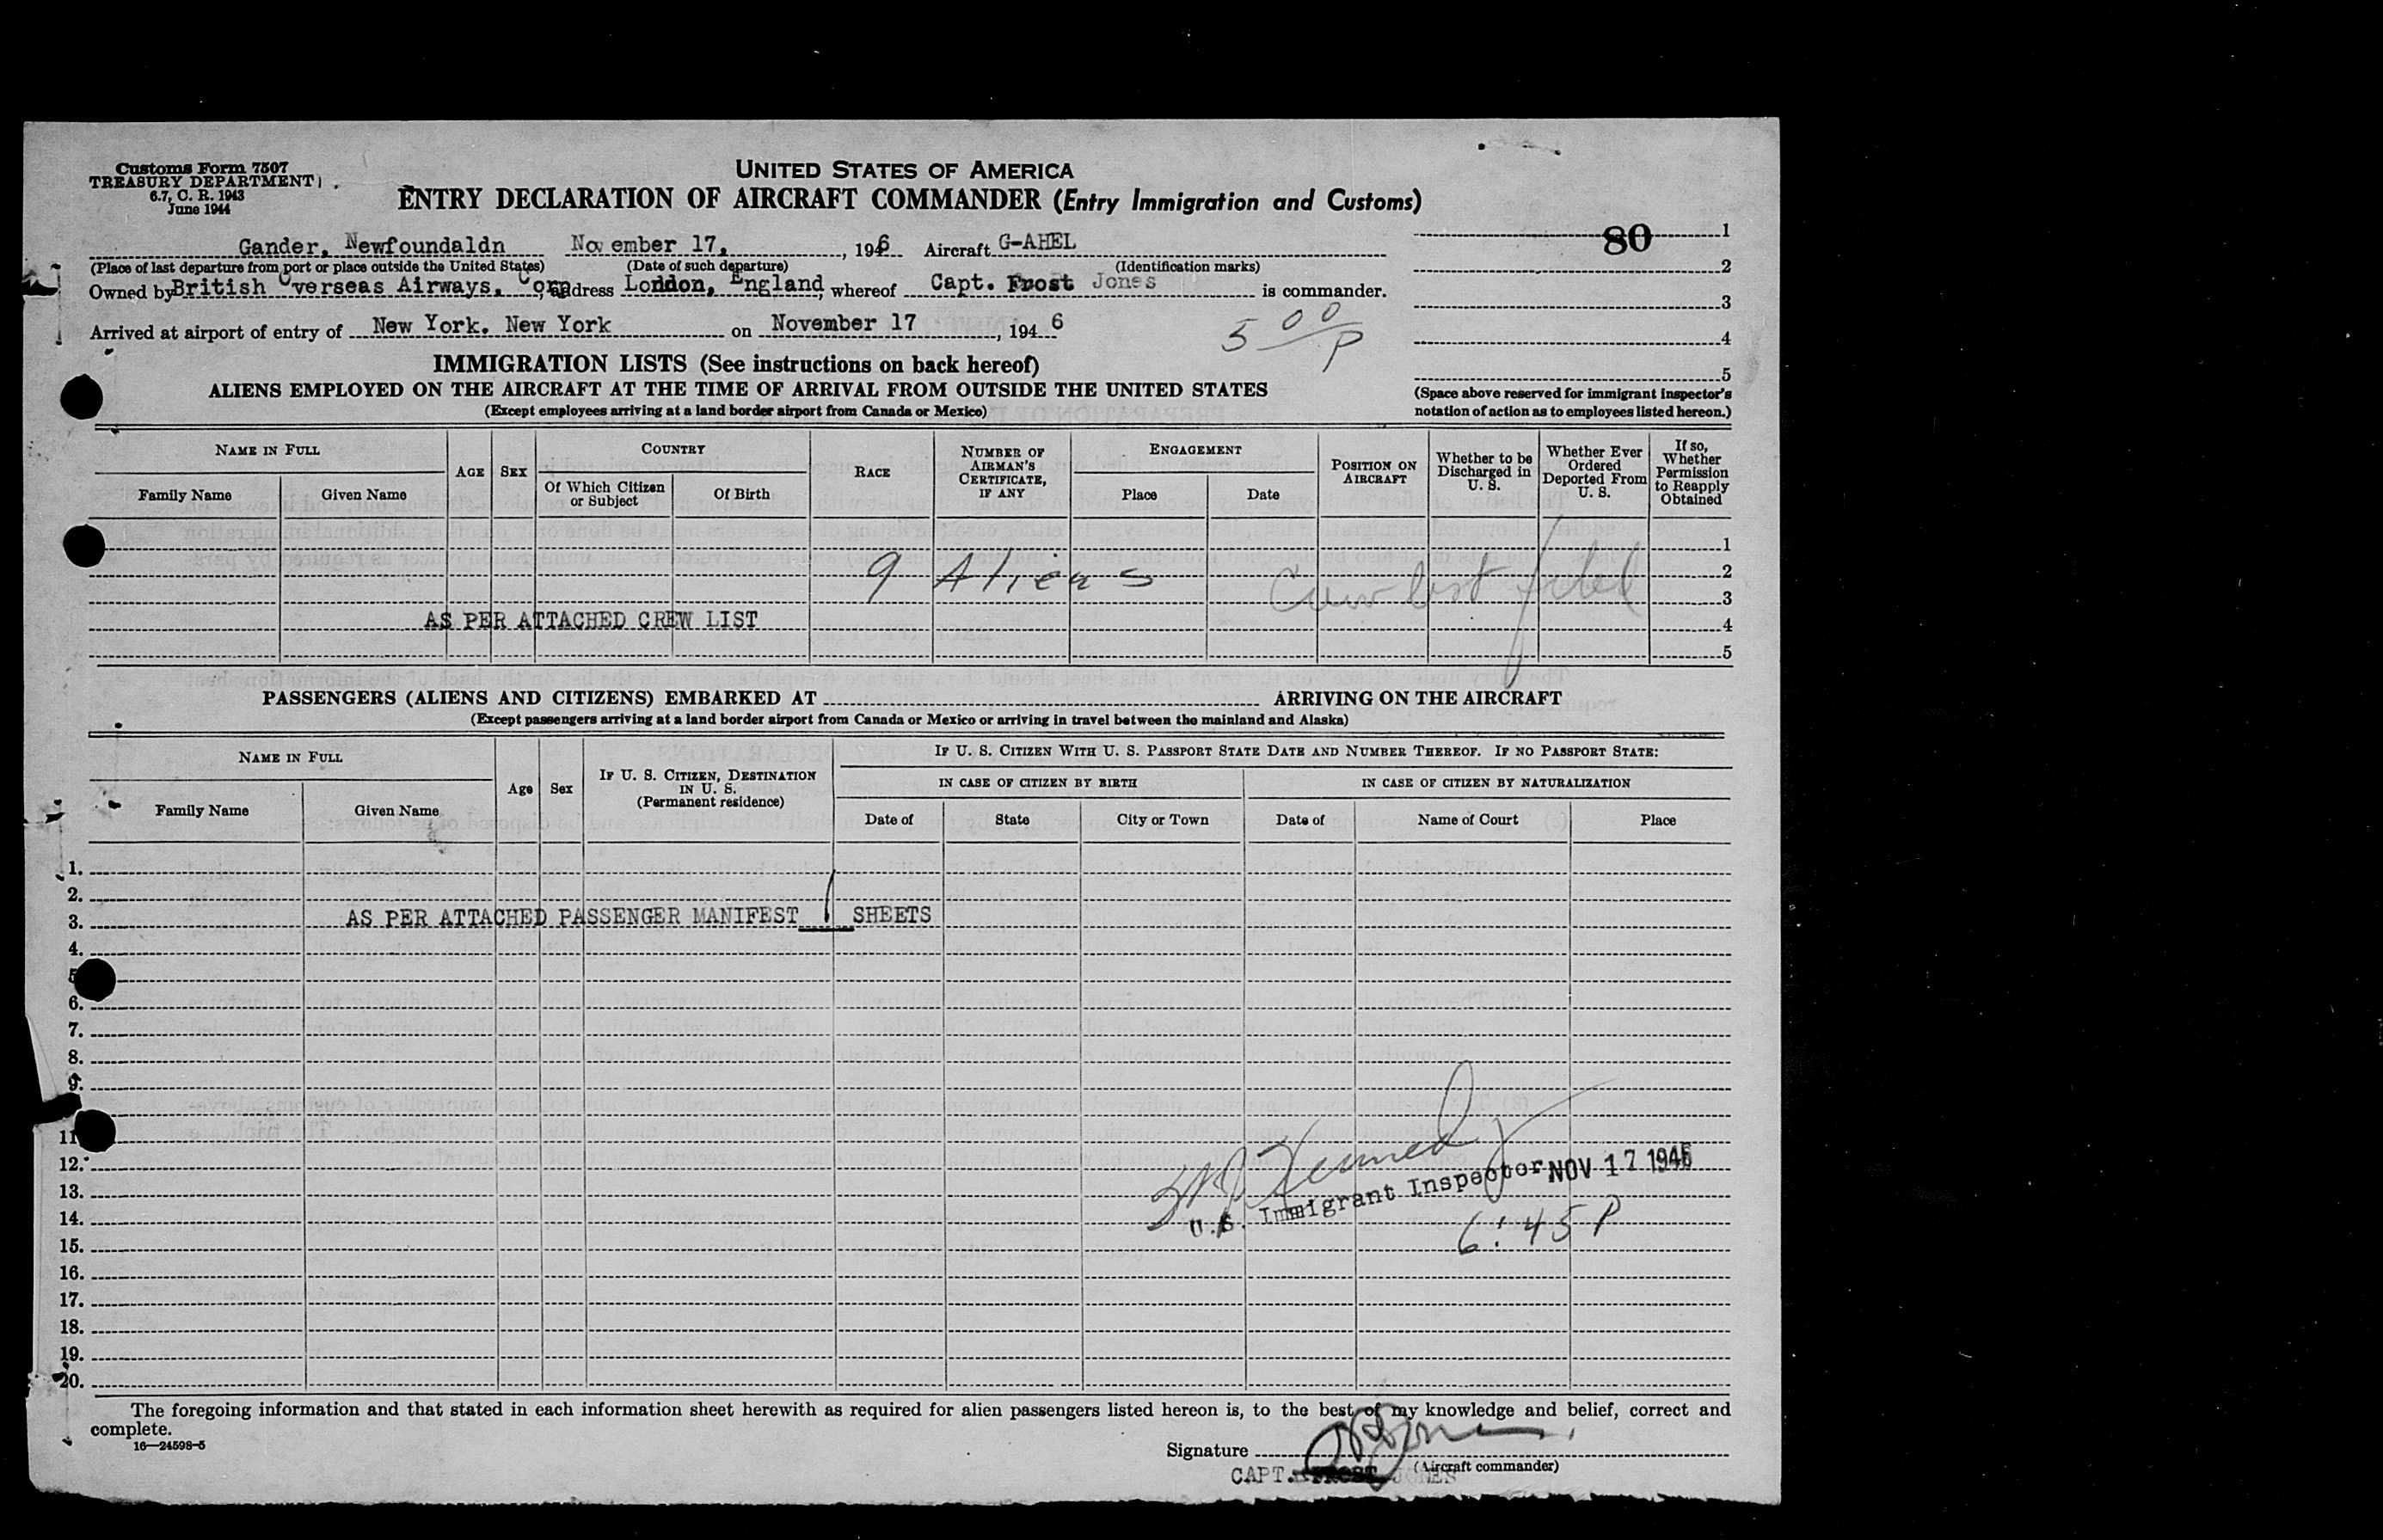 Customs Form 7507
TREASURY DEPARTMENT
6.7, C. R. 1943
June 1944
UNITED STATES OF AMERICA
ENTRY DECLARATION OF AIRCRAFT COMMANDER (Entry Immigration and Customs)
80
Gander, Newfoundaldn November 17, , 1946 Aircraft G-AHEL 1
(Place of last departure from port or place outside the United States) (Date of such departure) (Identification marks) 2
Owned by British Overseas Airways, Corp, address London, England, whereof Capt. Frost Jones is commander. 3
Arrived at airport of entry of New York. New York on November 17, 1946 5 00 P 4
5
IMMIGRATION LISTS (See instructions on back hereof)
ALIENS EMPLOYED ON THE AIRCRAFT AT THE TIME OF ARRIVAL FROM OUTSIDE THE UNITED STATES
(Except employees arriving at a land border airport from Canada or Mexico)
(Space above reserved for immigrant inspector's
notation of action as to employees listed hereon.)
NAME IN FULL
Family Name Given Name
AGE SEX
COUNTRY
Of Which Citizen or Subject
Of Birth
RACE
NUMBER OF AIRMAN'S CERTIFICATE, IF ANY
ENGAGEMENT
Place Date
POSITION ON AIRCRAFT
Whether to be Discharged in U. S.
Whether Ever Ordered Deported From U. S.
If so, Whether Permission to Reapply Obtained
1
9 Aliens Crew list filed 2
3
AS PER ATTACHED CREW LIST 4
5
PASSENGERS (ALIENS AND CITIZENS) EMBARKED AT ARRIVING ON THE AIRCRAFT
(Except passengers arriving at a land border airport from Canada or Mexico or arriving in travel between the mainland and Alaska)
NAME IN FULL
Family Name Given Name
Age Sex
IF U. S. CITIZEN, DESTINATION IN U. S.
(Permanent residence)
IF U. S. CITIZEN WITH U. S. PASSPORT STATE DATE AND NUMBER THEREOF. IF NO PASSPORT STATE:
IN CASE OF CITIZEN BY BIRTH IN CASE OF CITIZEN BY NATURALIZATION
Date of State City or Town Date of Name of Court Place
1.
2.
3. AS PER ATTACHED PASSENGER MANIFEST 1 SHEETS
4.
5
6.
7.
8.
9.
11
12.
13.
14.
15.
16.
17.
18.
19.
20.
Kennedy
U.S. Immigrant Inspector NOV 17 1946
6:45 P
The foregoing information and that stated in each information sheet herewith as required for alien passengers listed hereon is, to the best of my knowledge and belief, correct and
complete.
16—24598-5
Signature
(Aircraft commander)
CAPT. FROST JONES